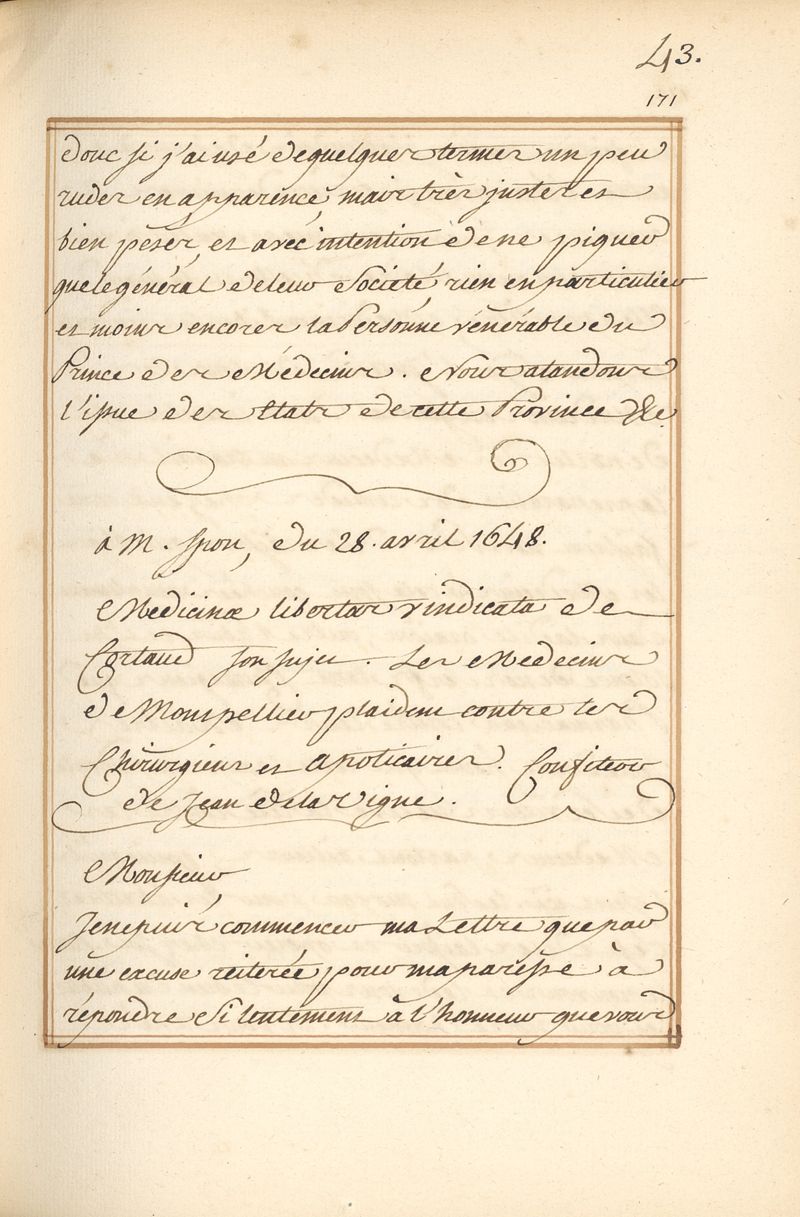 43.
171
donc si j'ai usé de quelques termes un peu
rudes en apparence, mais très justes et
bien pesés, et avec intention de ne piquer
que le général de leur Societé, rien en particulier
et moins encores la Personne vénérable du
Prince des Médecins. Nous atandons
l'issue des Etats de cette Province &c.
à M. Spon, du 28. avril 1648.
Medicinæ libertas vindicata de
Cortaud son sujet. Les Medecins
de Montpellier plaident contre les
Chirurgiens et apoticaires. Confiteor
de Jean de la Vigne.
Monsieur
Je ne puis commencer ma Lettre que par
une excuse reiterée pour ma paresse à
répondre si lentement à l'honneur que vous